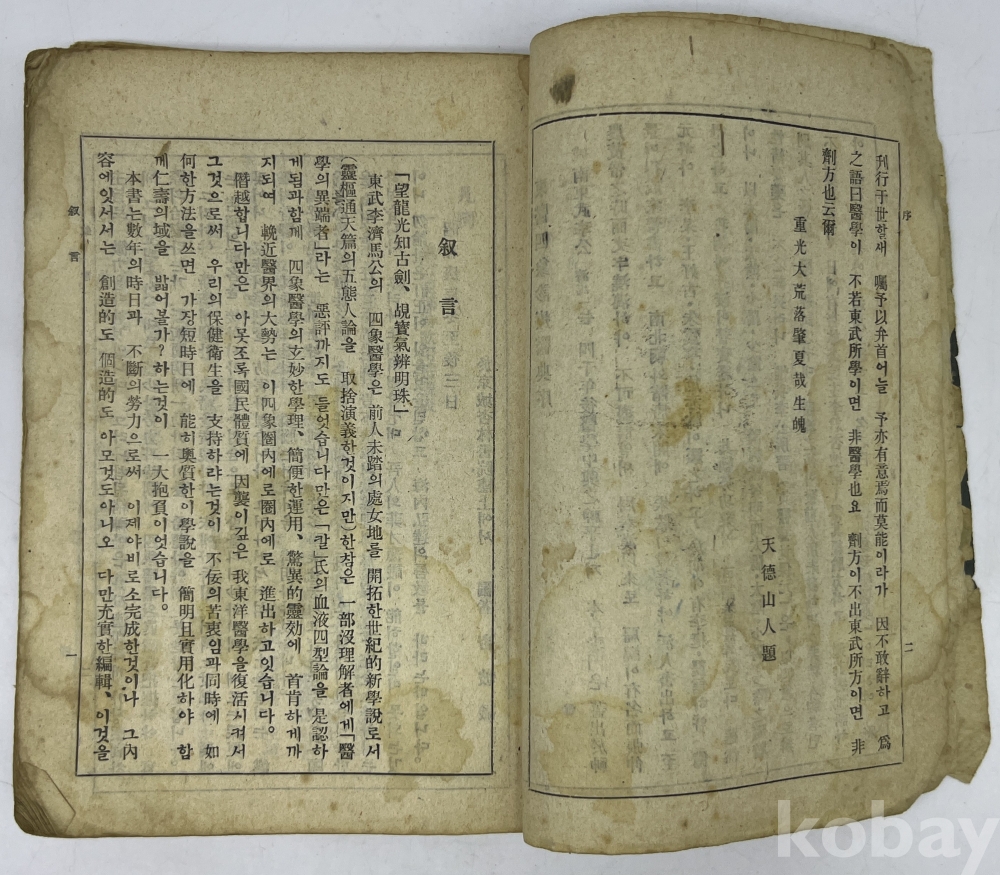 序
二
刊行于世할새 囑予以弁首어늘 予亦有意焉而莫能이라가 因不敢辭하고 爲
之語曰醫學이 不若東武所學이면 非醫學也요 劑方이不出東武所方이면 非
劑方也云爾
重光大荒落肇夏哉生魄
天德山人題
叙言
「望龍光知古劍、覘寶氣辨明珠」
東武李濟馬公의 四象醫學은 前人未踏의處女地를 開拓한世紀的新學說로서
(靈樞通天篇의五態人論을 取捨演義한것이지만)한참은 一部沒理解者에게「醫
學의異端者」라는 惡評까지도 들엇습니다만은「칼」氏의血液四型論을 是認하
게됨과함께 四象醫學의玄妙한學理、簡便한運用、驚異的靈効에 首肯하게까
지되여 輓近醫界의大勢는 이四象圈內에로圈內에로 進出하고잇습니다。
僭越합니다만은 아못조록國民體質에 因襲이깊은 我東洋醫學을復活시켜서
그것으로써 우리의保健衛生을 支持하랴는것이 不佞의苦衷임과同時에 如
何한方法을쓰면 가장短時日에 能히奧質한이學說을 簡明且實用化하야 함
께仁壽의域을 밟어볼가?하는것이 一大抱負이엇습니다。
本書는數年의時日과 不斷의勞力으로써 이제야비로소完成한것이나 그內
容에잇서서는 創造的도 個造的도 아모것도아니오 다만充實한編輯、이것을
叙言
一
kobay